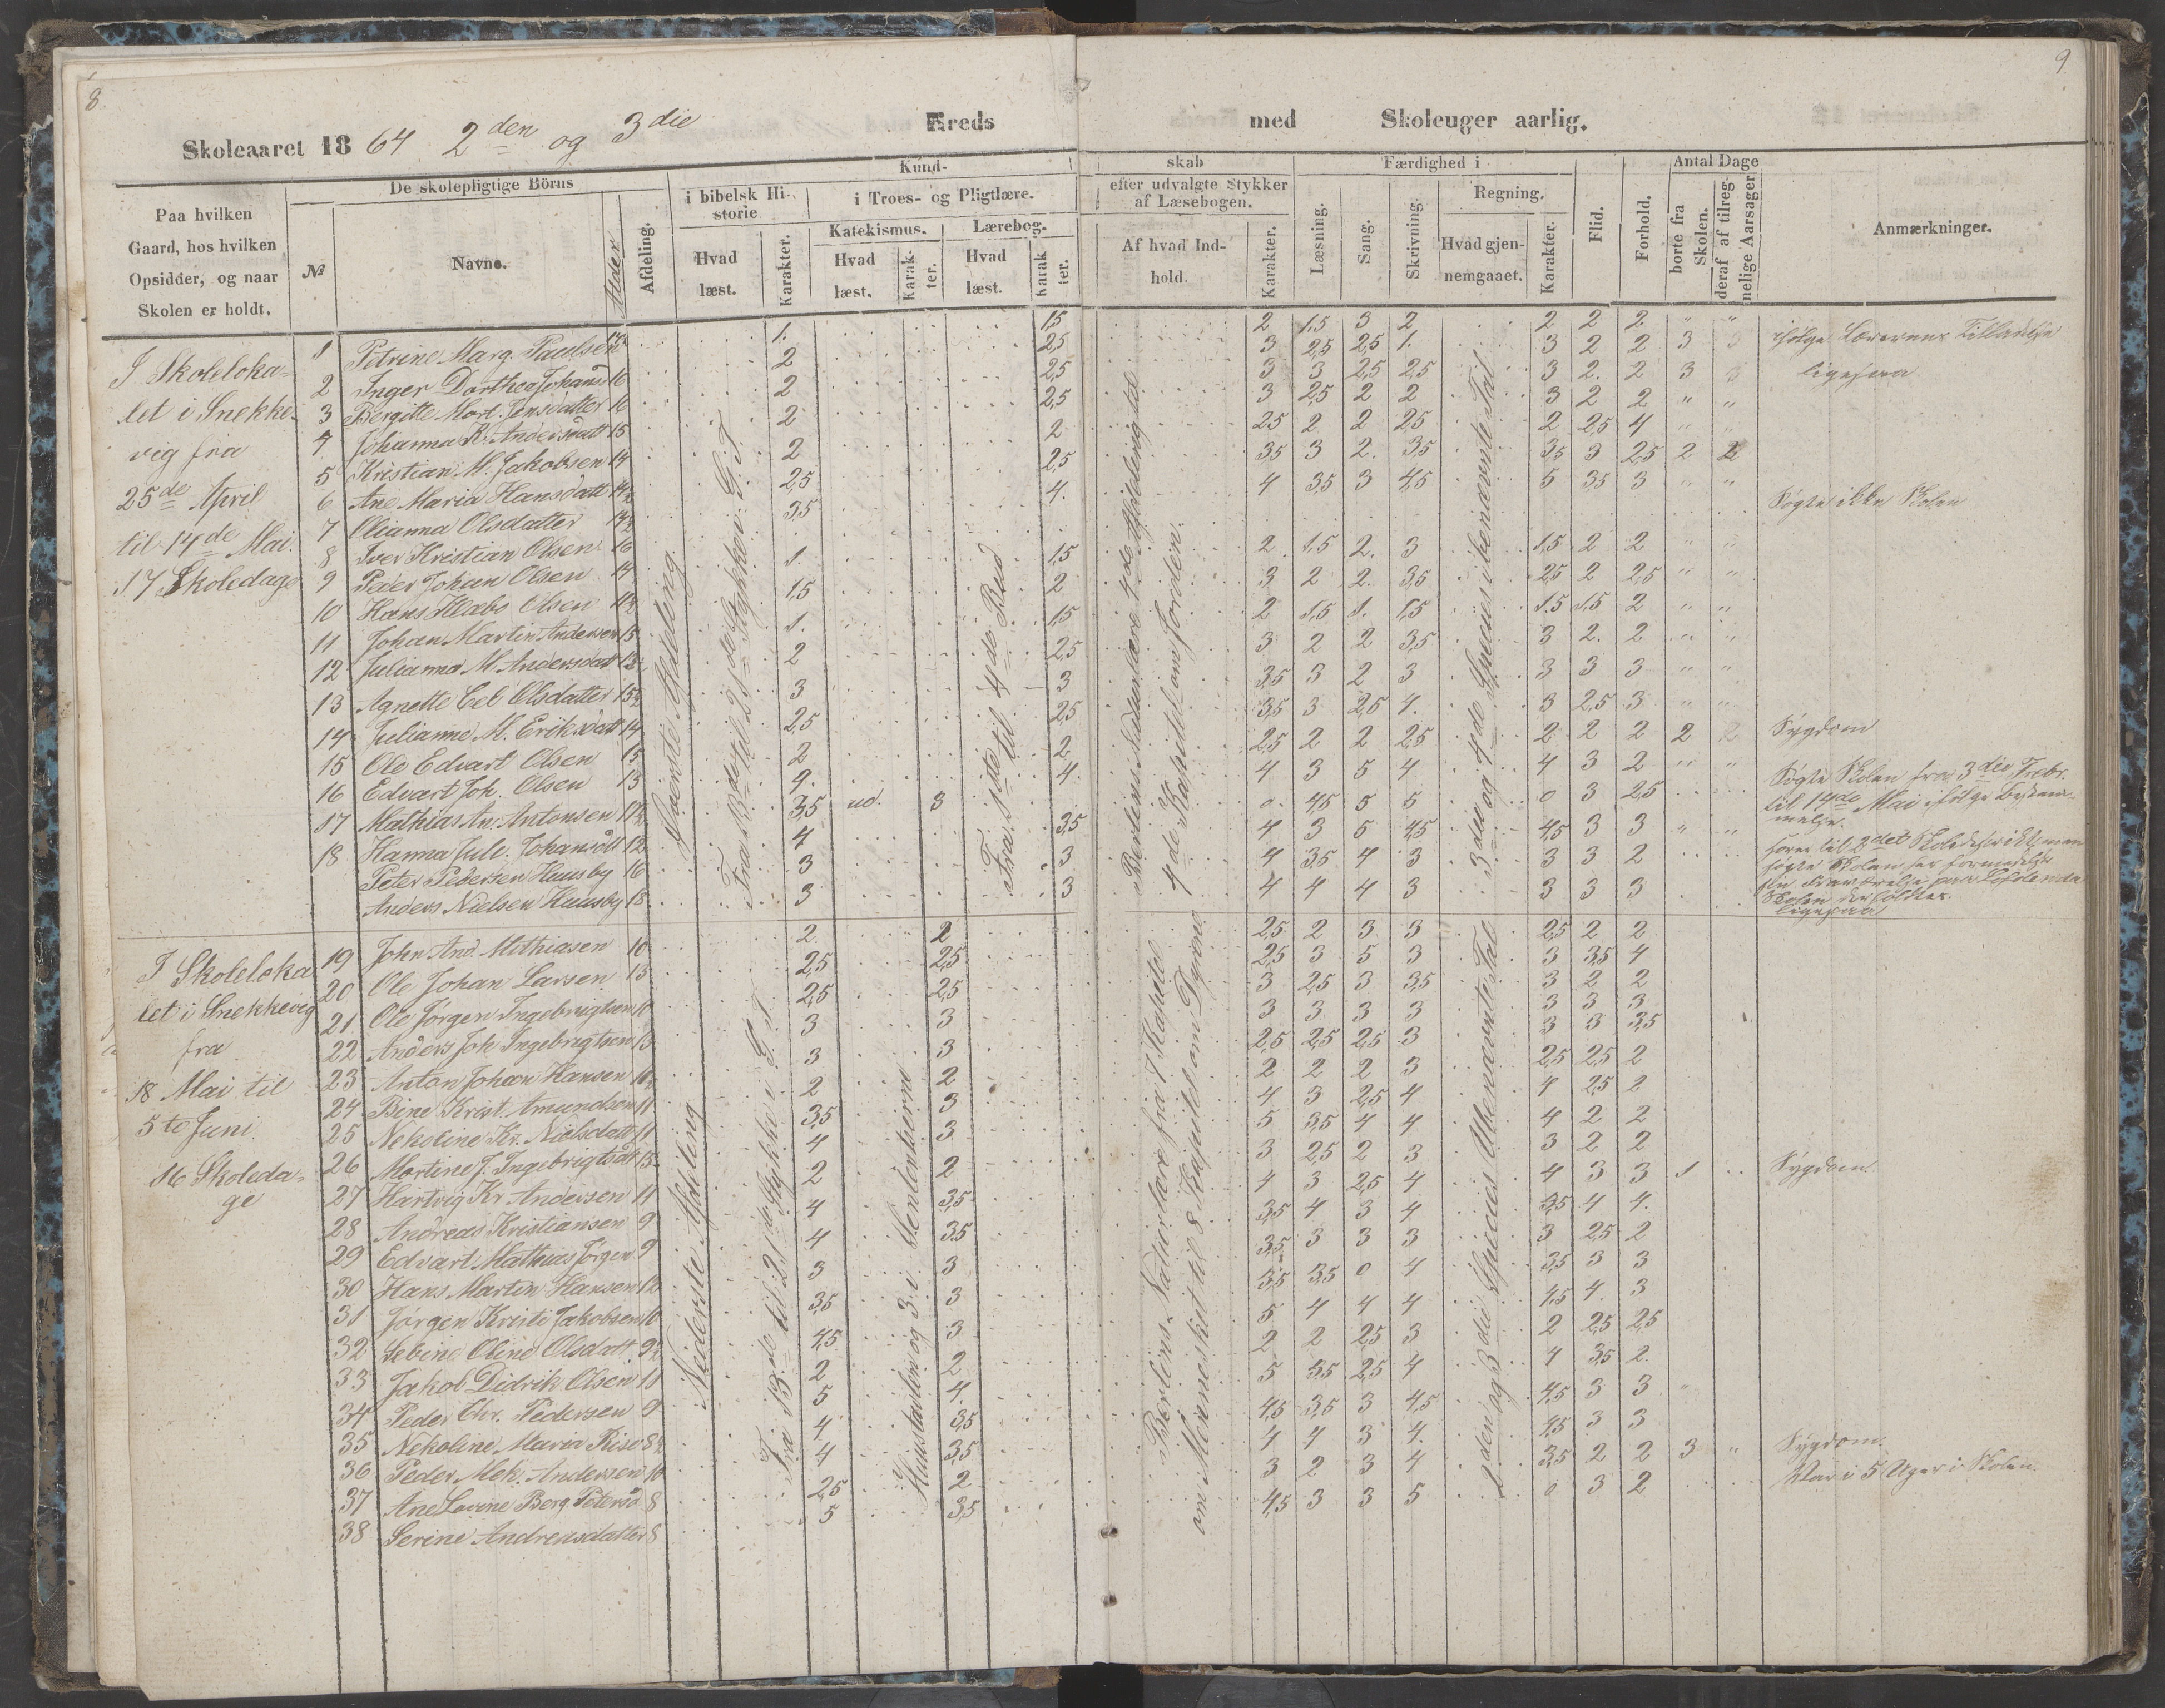 8
9
Skoleaaret 18 64 2den og 3die Kreds med Skoleuger aarlig.
Paa hvilken Gaard, hos hvilken Opsidder, og naar Skolen er holdt.
De skolepligtige Börns
№ Navne. Alder Afdeling.
Kundskab
i bibelsk Historie
Hvad læst. Karakter.
i Troes- og Pligtlære.
Katekismus. Hvad læst. Karakter.
Lærebog. Hvad læst. Karakter.
efter udvalgte Stykker af Læsebogen.
Af hvad Indhold. Karakter.
Færdighed i
Læsning. Sang. Skrivning.
Regning. Hvad gjennemgaaet. Karakter.
Flid. Forhold.
Antal Dage
borte fra Skolen. deraf af tilregnelige Aarsager
Anmærkninger.
I Skoleloka-
let i Snekke-
vig fra
25de April
til 14de Mai.
17 Skoledage
Øverste Afdeling.
Fra 13de til 21de Stykke i G. T.
Fra 1ste til 4de Bud
4de Kapitel om Jorden.
3die og 4de Species i benævnte Tal
1 Petrine Marg. Paulsen 1. 1,5 2 1,5 3 2 2 2 2 " "
2 Inger Dorthea Johansd. 16 2 2,5 3 2,5 2,5 1. 3 2 2 3 3 ifølge Lærerens Tilladelse
3 Bergitte Mort. Jensdatter 16 2 2,5 3 3 2,5 2,5 3 2. 2 3 3 ligesaa
4 Johanna R. Andersdatt 15 2 2,5 3 2,5 2 2 3 2 2 " "
5 Kristian M. Jakobsen 14 2 2 2,5 2 2 2,5 2 2,5 4 " "
6 Ane Maria Hansdatt 2,5 2,5 3,5 3 2. 3,5 3,5 3 2,5 2 2
7 Olianna Olsdatter 3,5 4. 4 3,5 3 4,5 5 3,5 3 " "
8 Iver Kristian Olsen 16 Søgte ikke Skolen
9 Peder Johan Olsen 14 1. 1,5 2 1,5 2. 3 1,5 2 2 " "
10 Hans Olsen 1,5 2 3 2 2. 3,5 2,5 2 2,5 " "
11 Johan Martin Andersen 13 1. 1,5 2 1,5 1. 1,5 1.5 1.5 2 " "
12 Julianna M. Andersdatt 2 2,5 3 2 2 3,5 3 2. 2 " "
13 Agnette Cel. Olsdatter 3 3 3,5 3 2 3 3 3 3 " "
14 Julianne M. Eriksdatt 14 2,5 2,5 3,5 3 2,5 4. 3 2,5 3 " "
15 Ole Edvart Olsen 15 2 2 2,5 2 2 2,5 2 2 2 2 2 Sygdom
16 Edvart Joh. Olsen 13 4. 4. 4 3 5 4 4 3 2 " "
17 Mathias An. Antonsen 3,5 ud. 3 0. 4,5 5 5 0 3 2,5 Søgte Skolen fra 3die Febr.
til 14de Mai ifølge Bestem-
melse.
18 Hanna Jul. Johansdtt 12 4 3,5 4 3 5 4,5 4,5 3 3 " "
Peter Pedersen Huusby 16 3 3 4 3,5 4 3 3 3 2
Anders Nielsen Huusby 18 3 3 4 4 4 3 3 3 3
hører til 2det Skoledistrikt men
søgte Skolen her formedelst
Skolen der holdtes.
ligesaa
I Skoleloka
let i Snekkevig
fra
18 Mai til
5te Juni.
16 Skoleda-
ge
Nederste Afdeling
Fra 13de til 21de Stykke i G. T.
Huustavlen og 3 i
Naturlære fra 7 Kapitel
om Mennesket til 8 Kapitel om Dyrene
2den og 3die Species Ubenævnte Tal
19 John And. Mathiasen 10 2. 2 2,5 2 3 3 2,5 2 2
20 Ole Johan Larsen 13 2,5 2,5 2,5 3 5 3 3 3,5 4
21 Ole Jørgen Ingebrigtsen 10 2,5 2,5 3 2,5 3 3,5 3 2 2
22 Anders Joh Ingebrigtsen 13 3 3 3 3 3 3 3 3 3
23 Anton Johan Hansen 3 3 2,5 2,5 2,5 3 3 3 3,5
24 Bine Krist. Amundsen 11 2 2 2 2 2 3 2,5 2,5 2
25 Nekoline Kr. Nielsdatt 11 3,5 3 4 3 2,5 4 4 2,5 2
26 Martine J. Ingebrigtsdtt 4 3 5 3,5 4 4 4 2 2
27 Hartvig Kr. Andersen 11 2 2 3 2,5 2 3 3 2 2
28 Andreas Kristiansen 9 4 3,5 4 3 2,5 4 4 3 3 1 Sygdom.
29 Edvart Mathias Jørgen 9 4 3,5 3,5 4 3 4 3,5 4 4.
30 Hans Martin Hansen 12 3 3 3,5 3 3 3 3 2,5 2
31 Jørgen Kristi Jakobsen 10 3,5 3 3,5 3,5 0 4 3,5 3 3
32 Sebine Oline Olsdatt 4,5 3 5 4 4 4 4,5 4. 3
33 Jakob Didrik Olsen 11 2 2 2 2 2,5 3 2 2,5 2,5
34 Peder Chr. Pedersen 9 5 4. 5 3,5 2,5 4 4 3,5 2.
35 Nekoline Maria Riise 4 3,5 4,5 3,5 3 4,5 4,5 3 3
36 Peder Mek. Andersen 10 4 3,5 4 4 3 4. 4,5 3 3
37 Ane Lovine Berg. Petersd 8 2,5 2 3 2 3 4 3,5 2 2 3 " Sygdom.
38 Serine Andreasdatter 8 5 3,5 4,5 3 3 5 0 3 2 Var i 5 Uger i Skolen.